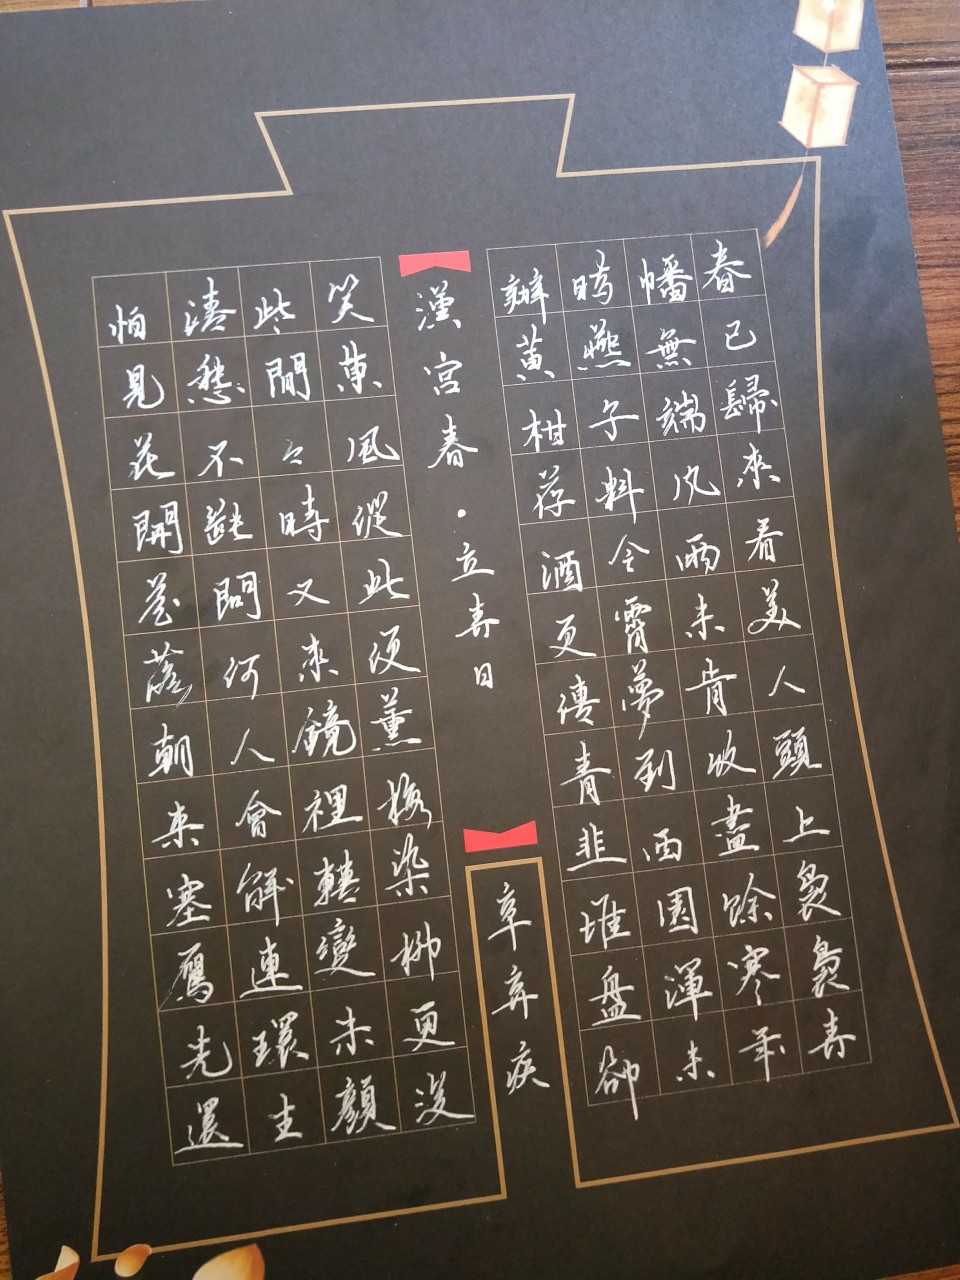 春已歸來看美人頭上裊裊春
幡無端风雨未肯收盡餘寒年
時燕子料今宵夢到西園渾未
辦黃柑荐酒更傳青韭堆盤卻
漢宮春·立春日
辛弃疾
笑東風從此便薰梅染柳更沒
些閒々時又來鏡裡轉變朱顏
清愁不斷問何人會解連環生
怕見花開花落朝来塞鴈先還